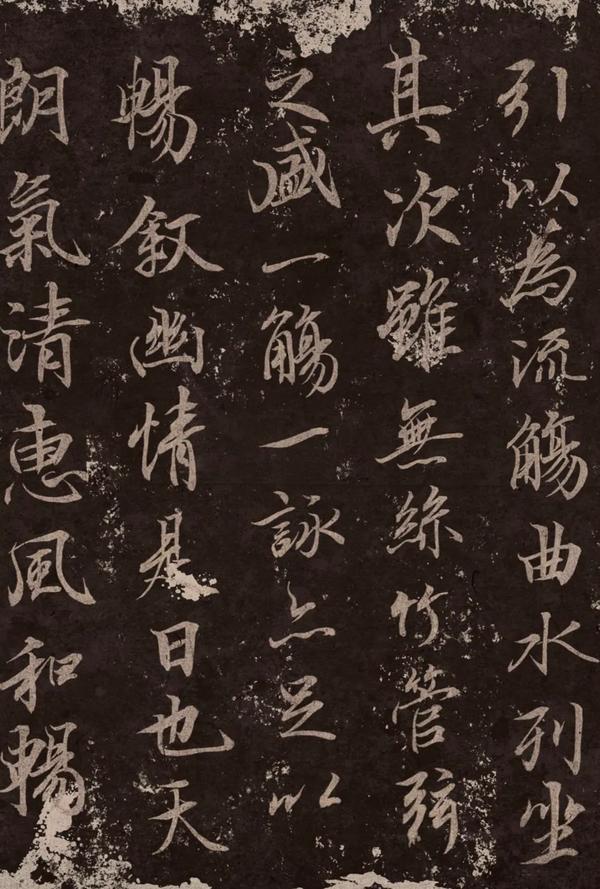 引以為流觴曲水列坐
其次雖無絲竹管弦
之盛一觴一詠亦足以
暢敘幽情是日也天
朗氣清惠風和暢